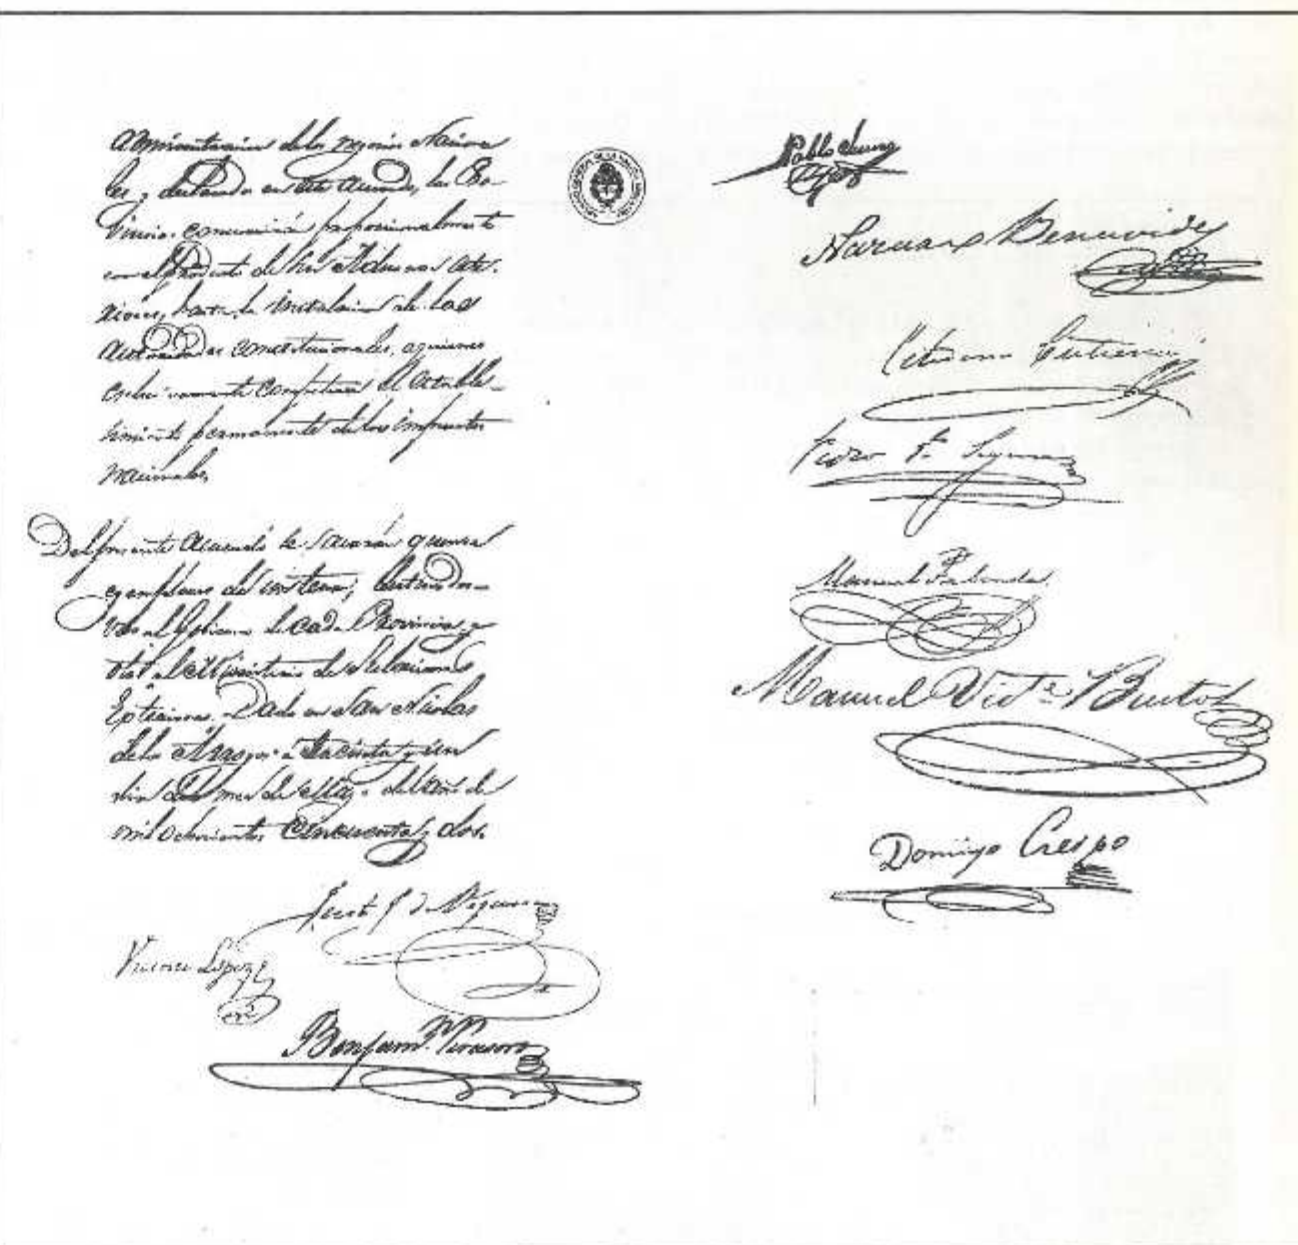 administracion de los negocios Naciona
les, declarados en este Acuerdo, las Pro-
vincias concurriran proporcionalmente
con el producto de sus Aduanas este-
riores, hasta la instalacion de las
autoridades constitucionales, a quienes
esclusivamente competirá el estable-
cimiento permanente de los impuestos
nacionales.
Del presente Acuerdo se sacarán quince
ejemplares de un tenor, destinados
uno al Gobierno de cada Provincia, y
otro al Ministerio de Relaciones
Esteriores. Dado en San Nicolas
de los Arroyos a treinta y un
dias del mes de Mayo del año de
mil ochocientos cincuenta y dos.
Justo J. de Urquiza
Vicente Lopez
Benjamn. Virasoro
Pablo Lucero
Nazario Benavides
Celedonio Gutierrez
Pedro Segura
Manuel Taboada
Manuel Victe. Bustos
Domingo Crespo